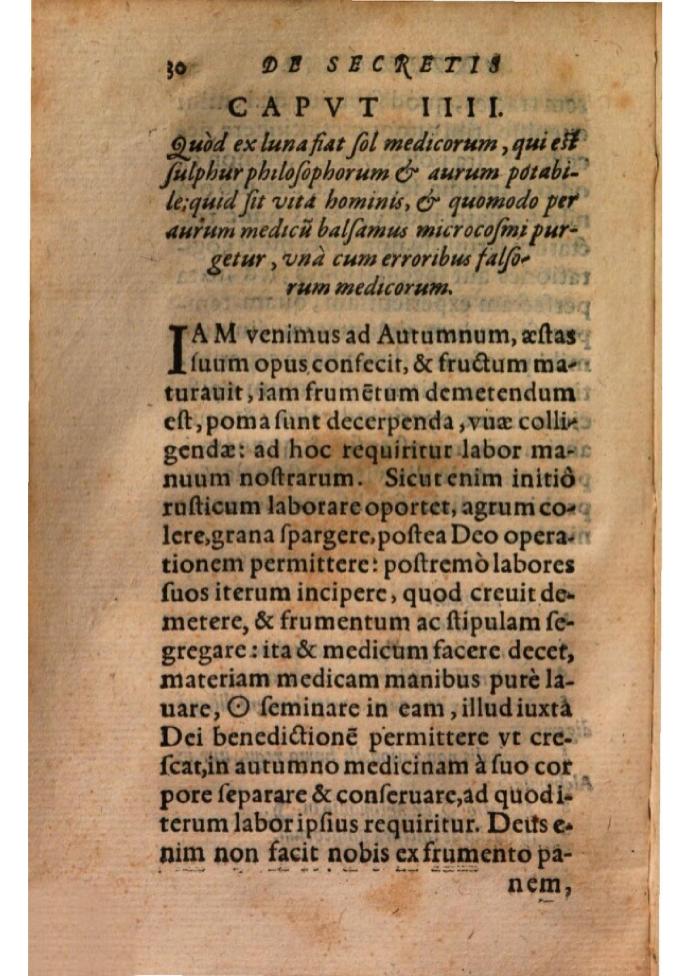 30 DE SECRETIS
CAPVT IIII.
Quòd ex luna fiat ſol medicorum, qui eſt
ſulphur philoſophorum & aurum potabi-
le; quid ſit vita hominis, & quomodo per
aurum medicũ balſamus microcoſmi pur-
getur, vnà cum erroribus falſo-
rum medicorum.
IAM venimus ad Autumnum, æſtas
ſuum opus confecit, & fructum ma-
turauit, iam frumẽtum demetendum
eſt, poma ſunt decerpenda, vuæ colli-
gendæ: ad hoc requiritur labor ma-
nuum noſtrarum. Sicut enim initiò
ruſticum laborare oportet, agrum co-
lere, grana ſpargere, poſtea Deo opera-
tionem permittere: poſtremò labores
ſuos iterum incipere, quod creuit de-
metere, & frumentum ac ſtipulam ſe-
gregare: ita & medicum facere decet,
materiam medicam manibus purè la-
uare, ☉ ſeminare in eam, illud iuxta
Dei benedictionẽ permittere vt cre-
ſcat, in autumno medicinam à ſuo cor
pore ſeparare & conſeruare, ad quod i-
terum labor ipſius requiritur. Deus e-
nim non facit nobis ex frumento pa-
nem,